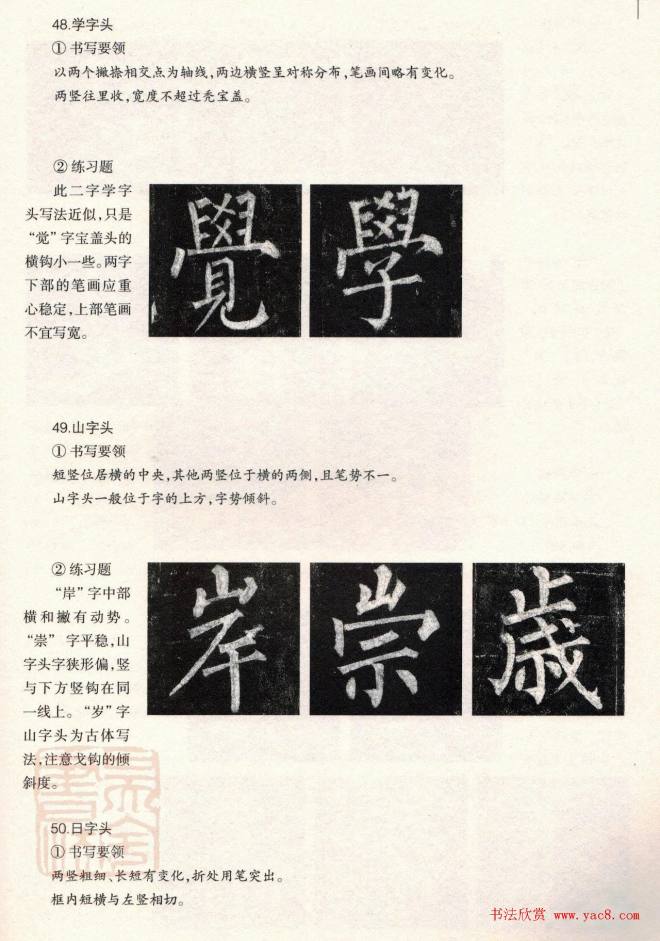 48.学字头
①书写要领
以两个撇捺相交点为轴线,两边横竖呈对称分布,笔画间略有变化。
两竖往里收,宽度不超过秃宝盖。
②练习题
此二字学字
头写法近似,只是
“觉”字宝盖头的
横钩小一些。两字
下部的笔画应重
心稳定,上部笔画
不宜写宽。
覺 學
49.山字头
①书写要领
短竖位居横的中央,其他两竖位于横的两侧,且笔势不一。
山字头一般位于字的上方,字势倾斜。
②练习题
“岸”字中部
横和撇有动势。
“崇”字平稳,山
字头字狭形偏,竖
与下方竖钩在同
一线上。“岁”字
山字头为古体写
法,注意戈钩的倾
斜度。
岸 崇 歲
50.日字头
①书写要领
两竖粗细、长短有变化,折处用笔突出。
框内短横与左竖相切。
书法欣赏 www.yac8.com